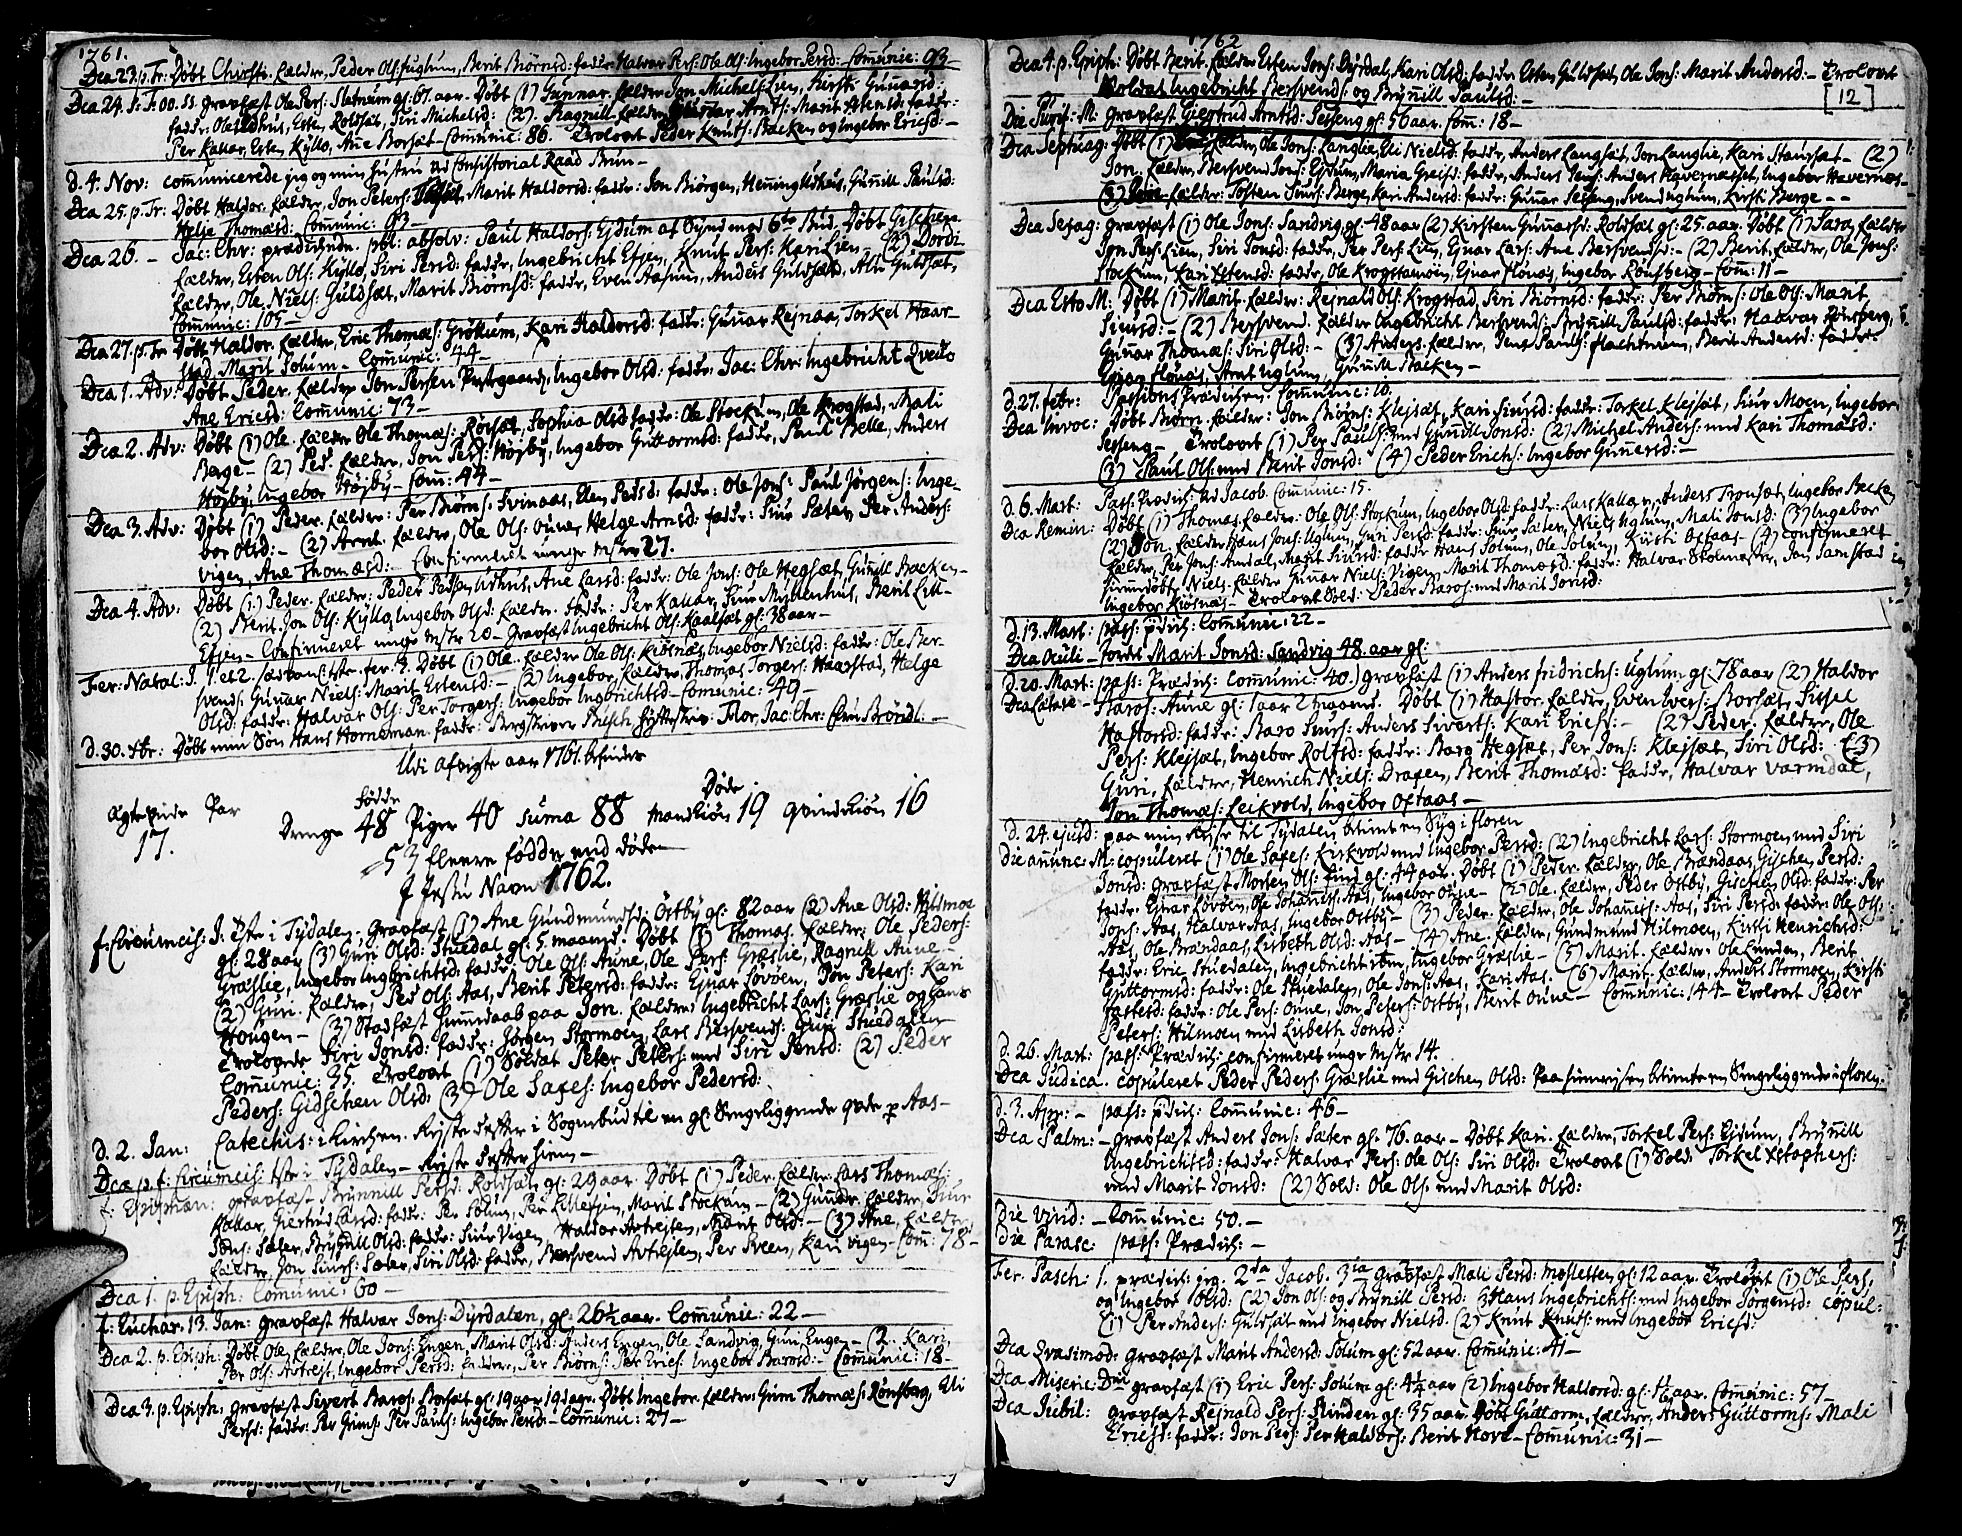 1761.
Dca 23. p. Tr: Døbt Chirsti. fældre, Peder Ols: fuglum, Berit Biørnsd: faddr: Halvar Pers: Ole Ols: Ingebor Persd: Communic: 93
Dca 24. p. Tr: gravfæst Ole Pers: Slatnum gl: 67. aar. Døbt (1) Gunnar. fældre Jon Michels: Lien, Kirsti Gunnarsd:
faddr: Ole Udhus, Esten Roldsæt, Siri Michelsd: (2). Ragnill fældre, Arnts: Marit Estensd: faddr:
Per Kallar, Esten Kyllo, Ane Borsæt - Communic: 86. Trolovt Peder Knuts: Backen og Ingebor Ericsd:
d. 4. Nov: communicerede jeg og min Hustru ved Consistorial Raad Brun -
Dca 25. p. Tr: Døbt Haldor. fældre, Jon Peters: Marit Haldorsd: faddr: Jon Biørgen, Henning Udhus, Gunnill Paulsd:
Helje Thomæsd: Communic: 93 -
Dca 26. - Jac: Chr: prædickede. publ: absolv: Paul Haldors: Ejdum af Synd mod 6te Bud. Døbt Gischen
fældre, Esten Ols: Kyllo, Siri Persd: faddr, Ingebricht Etjen, Knut Pers: Kari Lien - (2) Dordi
fældre, Ole Niels: Guldsæt, Marit Biørnsd: faddr, Even Aasum, Anders Guldsæt, Alt Guldsæt,
Communic: 105 -
Dca 27. p. Tr Døbt Haldor. fældre, Eric Thomæs: Grøttum, Kari Haldorsd: faddr: Gunnar Rejnaa, Torkel Haar-
stad, Marit Solum - Communic: 44 -
Dca 1. Adv: Døbt Peder. fældre Jon Persen Præstgaard, Ingebor Olsd: faddr: Jac: Chr: Ingebricht Qvello
Ane Ericsd: Communic: 73 -
Dca 2. Adv: Døbt (1) Ole. fældre Ole Thomæs: Rølsæt, Sophia Olsd faddr: Ole Stockum, Ole Krogstad, Mali
Berge - (2) Ped. fældre, Jon Pers: Højby, Ingebor Guttormsd: faddr, Paul Belle, Anders
Højby, Ingebor Højby - Com: 44 -
Dca 3. Adv: Døbt (1) Peder. fældre: Per Biørns: Svinaas, Elen Pedsd: faddr: Ole Jons: Paul Jørgens: Inge-
bor Olsd: - (2) Arnt. fældre, Ole Ols: Oune, Helge Arnsd: faddr: Siur Sæter, Per Anders:
Vigen, Ane Thomæsd: - Confirmeret unge Mskr 27.
Dca 4. Adv: Døbt (1) Peder. fældre: Peder Pedsen Udhus, Ane Larsd: faddr: Ole Jons: Ole Hegsæt, Gunnill Backen -
(2) Berit. Jon Ols: Kyllo, Ingebor Olsd: fældre. faddr: Per Kallar, Siur Myhlenhus, Berit Litl-
Etjen - Confirmeret unge Mskr 20 - Gravfæst Ingebricht Ols: Kaalsæt gl: 38 aar -
Fer: Natal: D. 1 et 2. Døbt (1) Ole. fældre Ole Ols: Kiøsnæs, Ingebor Nielsd: faddr: Ole Ber-
svends: Gunnar Niels: Marit Estensd: - (2) Ingebor, fældre, Thomas Torgers: Haarstad, Helge
Olsd: faddr: Halvar Ols: Per Torgers: Ingebor Ingbrichtsd - Comunic: 49 -
d. 30. xbr: Døbt min Søn Hans Horneman. faddr: Jac: Chr: -
Udi afvigte aar 1761. befindes
Ægteviede Par 17.
fødde Drenge 48 Piger 40 suma 88
Døde Mandkiøn 19 Qvindekiøn 16
53 fleere fødde end døde
J Jesu Navn 1762.
f: Circumcis: D: Tste i Tydalen. gravfæst (1) Ane Gundmundsd: Østby gl: 82 aar (2) Ane Olsd: Hilmoe
gl: 28 aar (3) Guri Olsd: Stuedal gl: 5. maaned. Døbt (1) Thomas. fældre: Ole Peders:
Græslie, Ingebor Ingbrichtsd: faddr: Ole Ols: Aune, Ole Pers: Græslie, Ragnill Aune -
(2) Guri. fældre, Ped Ols: Aas, Berit Petersd: faddr: Ejnar Lovøen, Jon Peters: Kari
Hougen - (3) Stadfæst hiemmedaab paa Jon. fældre, Ingebricht Lars: Græslie og hans
Trolovede Siri Jonsd: faddr: Jørgen Stormoen, Lars Bersvends: Guri Stuedalen
Communic: 35. Trolovt (1) Soldat Peter Peters: med Siri Jonsd: (2) Peder
Peders: Gidschen Olsd: (3) Ole Saxes: Ingebor Pedersd:
d. 2. Jan: Catechis: i Kirchen. Rejste derefter i Sognebud til en gl: Sengeliggende Qvde p Aas -
Dca p. f. Circumcis: Tste i Tydalen - Rejste derefter hiem -
f. Epiphan: gravfæst Brynnill Persd: Roldsæt, gl: 29 aar. Døbt (1) Peder. fældre: Lars Thomæs:
Kallar, Giertrud Larsd: faddr: Per Solum, Per Litletjen, Marit Stockum - (2) Gunnar. fældre, Siur
Jons: Sæter, Brynnill Olsd: faddr: Siur Vigen, Haldor Avtrejten, Olsd: - (3) Ane, fældre
fældre, Jon Siurs: Sæter, Siri Olsd: faddr, Bersvend Avtrejten, Per Sveen, Kari Vigen - Com: 78 -
Dca 1. p. Epiph: Comunic: 60 -
f. Euchar. 13 Jan: gravfæst Halvar Jons: Dyrdalen, gl: 26½ aar. Communic: 22 -
Dca 2. p. Epiph: Døbt Ole, fældre, Ole Jons: Engen, Marit Olsd: Anders Engen, Ole Sandvig, Guri Engen - (2. Kari
Per Ols: Avtrejt, Ingebor Persd: faddre, Per Biørns: Per Erics: Ingebor Barosd: - Communic: 18 -
Dca 3. p. Epiph: gravfæst Sivert Baros: Borsæt gl: 19 aar 19 dage. Døbt Ingebor. fældre, Thomæs: Rønsberg, Eli
Persd: faddr: Per Gunnars: Per Pauls: Ingebor Persd: - Comunic: 27 -
1762
[12]
Dca 4. p. Epiph: Døbt Berit. fældre Esten Jons: Dyrdal, Kari Olsd: faddr Esten Guldsæt, Ole Jons: Marit Andersd: - Trolovt
Soldat Ingebricht Bersvends: og Brynnill Paulsd: -
Die Purif: M: gravfæst Giertrud Arntsd: Sesseng gl: 56 aar. Com: 18 -
Dca Septuag: Døbt (1) fældre, Ole Jons: Langlie, Eli Nielsd: faddr, Anders Langsæt, Jon Langlie, Kari Stavsæt - (2)
Jon. fældre, Bersvend Jons: Ejdum, Maria Greisd: faddr, Anders Jens: Anders Havernæsset, Ingebor Havernæs -
(3) fældre: Tosten Siurs: Berge, Kari Andersd: faddr: Gunnar Sesseng, Svend Uglum, Kirsti Berge - -
Dca Sexag: gravfæst (1) Ole Jons: Sandvig gl: 48 aar (2) Kirsten Gunnarsd: Roldsæt gl: 25 aar. Døbt (1) Sara, fældre
Jon Pers: Lien, Siri Jonsd: faddr, Per Pers: Lien, Ejnar Lars: Ane Bersvensd: - (2) Berit. fældre, Ole Jons:
Stockum, Kari Estensd: faddr, Ole Krogstamoen, Ejnar Flønæs, Ingebor Rønsberg - Com: 11 -
Dca Esto M: Døbt (1) Marit. fældre: Rejnald Ols: Krogstad, Siri Biørnsd: faddr: Per Biørns: Ole Ols: Marit
Siursd: - (2) Bersvend. fældre Ingebricht Bersvends: Brynnill Paulsd: faddr: Halvar Rønsberg,
Gunnar Thomæs: Siri Olsd: - (3) Anders. fældre, Jens Pauls: Flachtmem, Berit Andersd: faddr:
Flønæs, Arnt Uglum, Gunnill Backen -
d. 27. febr: Passions Prædichen: Communic: 10.
Dca Invoc: Døbt Biørn. fældre: Jon Biørns: Klejsæt, Kari Siursd: faddr: Torkel Klejsæt, Siur Moen, Ingebor
Sesseng - Trolovt (1) Per Pauls: med Gunnill Jonsd: (2) Michel Anders: med Kari Thomæsd:
(3) Paul Ols: med Berit Jonsd: (4) Peder Erichs: Ingebor Gunersd: -
d. 6. Mart: Pass: Prædich: ved Jacob. Communic: 15.
Dca Remin: Døbt (1) Thomas. fældre: Ole Ols: Stockum, Ingebor Olsd: faddr: Lars Kallar, Anders Tronsæt, Ingebor Becken
(2) Jon. fældre Hans Jons: Uglum, Guri Persd: faddr: Siur Sæter, Niels Uglum, Mali Jonsd: (3) Ingebor
fældre, Per Jons: Amdal, Marit Siursd: faddr Hans Solum, Ole Solum, Kirsti Oftaas - (4) confirmeret
hiemdøbt Niels. fældre Gunar Niels: Vigen, Marit Thomæsd: faddr: Halvar Stolmager, Jon Samstad
Ingebor Kiøsnæs - Trolovt Sold: Peder Baros: med Marit Jonsd:
d. 13. Mart: pass: prdich: Comunic: 22 -
Dca Oculi - Jordet Marit Jonsd: Sandvig 48. aar gl:
d. 20. Mart: pass: Prædich: Communic: 40.) gravfæst (1) Anders Fridrichs: Uglum, gl: 78 aar (2) Haldor
Dca Lætare - Baros: Aune gl: 1 aar 2 maaned. Døbt (1) Hastor. fældre, Even Ivers: Borsæt, Sissel
Hastorsd: faddr: Baro Siurs: Anders Siverts: Kari Ericsd: - (2) Peder. fældre, Ole
Pers: Klejsæt, Ingebor Rolfsd: faddr: Baro Hegsæt, Per Jons: Klejsæt, Siri Olsd: (3)
Guri, fældre, Henrich Niels: Draxen, Berit Thomæsd: faddr, Halvar Varmdal,
Jon Thomæs: Leikvold, Ingebor Oftaas -
d. 24. ejusd: paa min Rejse til Tydalen betient en Syg i floren
Die annunc: M: copuleret (1) Ole Saxes: Kirkvold med Ingebor Persd: (2) Ingebricht Lars: Stormoen med Siri
Jonsd: gravfæst Morten Ols: find gl: 44 aar. Døbt (1) Peder. fældre, Ole Brændaas, Gischen Persd:
faddr. Ejnar Lovøen, Ole Johanes: Aas, Ingebor Oune - (2) Ole. fældre, Peder Østby, Gischen Olsd: faddr: Per
Jons: Aas, Halvar Aas, Ingebor Østby - (3) Peder. fældre, Ole Johanes: Aas, Siri Persd: faddr: Ole Ols,
Aas, Ole Brændaas, Lisbeth Olsd: Aas - (4) Ane. fældre, Gundmund Hilmoen, Kirsti Henrichsd:
faddr: Eric Stuedalen, Ingebricht ibm, Ingebor Græslie - (5) Marit. fældre: Ole Lunden, Berit
Guttormsd: faddr: Ole Stuedalen, Ole Jons: Aas, Kari Aas. (6) Marit. fældre, Anders Stormoen, Kirsti
Fastesd: faddr: Ole Pers: Oune, Jon Peters: Østby, Berit Oune - Communic: 144 - Trolovt Peder
Peters: Hilmoen med Lisbeth Jonsd:
d. 26. Mart: pass: Prædich: confirmeret unge Mskr 14.
Dca Judica. copuleret Peder Peders: Græslie med Gischen Olsd: Paa hiemrejsen betiente en Sengeliggende i floren.
d. 3. Apr: - pass: pdich: Communic: 46 -
Dca Palm: - gravfæst Anders Jons: Sæter gl: 76. aar - Døbt Kari. fældre, Torkel Pers: Ejdum, Brynnill
Ingebrichtsd: faddr: Halvar Pers: Ole Ols: Siri Olsd: Trolovt (1) Sold: Torkel Xstophers:
med Marit Jonsd: (2) Sold: Ole Ols: med Marit Olsd:
Die Virid: - Communic: 50. -
Die Parasc: pass: Prædich: -
Fer. Pasch: 1. prædich: jeg. 2da Jacob. 3tia gravfæst Mali Persd: Mosletten gl: 12 aar. Trolovt (1) Ole Pers,
og Ingebor Olsd: (2) Jon Ols: og Brynill Persd: (3) Hans Ingebrichts: med Ingebor Jørgensd: copul:
(1) Per Anders: Guldsæt med Ingebor Nielsd. (2) Knut Knuts: med Ingebor Ericsd:
Dca Qvasimod: gravfæst Marit Andersd: Solum gl: 52 aar. Communic: 41 -
Dca Miseric: Dni gravfæst (1) Eric Pers: Solum gl: 4¼ aar (2) Ingebor Haldorsd: gl: 1½ aar. Communic: 57 -
Dca Jubil: gravfæst Rejnald Pers: Slinden gl: 35 aar. Døbt Guttorm. fældre, Anders Guttorms: Mali
Ericsd: faddr: Jon Pers: Per Haldors: Berit Hove - Comunic: 31 -